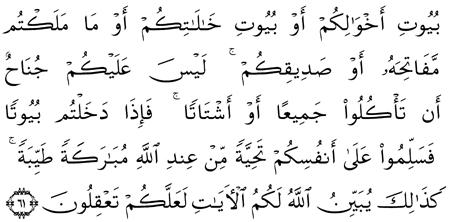 بُيُوتِ أَخْوَٰلِكُمْ أَوْ بُيُوتِ خَٰلَٰتِكُمْ أَوْ مَا مَلَكْتُم
مَّفَاتِحَهُۥٓ أَوْ صَدِيقِكُمْ ۚ لَيْسَ عَلَيْكُمْ جُنَاحٌ
أَن تَأْكُلُوا۟ جَمِيعًا أَوْ أَشْتَاتًا ۚ فَإِذَا دَخَلْتُم بُيُوتًا
فَسَلِّمُوا۟ عَلَىٰٓ أَنفُسِكُمْ تَحِيَّةً مِّنْ عِندِ ٱللَّهِ مُبَٰرَكَةً طَيِّبَةً ۚ
كَذَٰلِكَ يُبَيِّنُ ٱللَّهُ لَكُمُ ٱلْأَيَٰتِ لَعَلَّكُمْ تَعْقِلُونَ ﴿٦١﴾